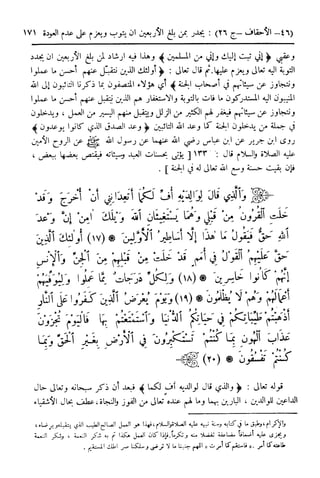 (٤٦- الأحقاف -ج ٢٦) : يجدر بمن بلغ الأربعين ان يتوب ويعزم على عدم العودة ١٧١
وعقبي ﴿ إني تبت إليك وإني من المسلمين ﴾ وهذا فيه ارشاد لمن بلغ الأربعين ان يجدد
التوبة الى الله تعالى ويعزم عليها. ثم قال تعالى : ﴿ أولئك الذين نتقبل عنهم أحسن ما عملوا
ونتجاوز عن سيئاتهم في أصحاب الجنة ﴾ أي هؤلاء المتصفون بما ذكرنا التائبون إلى الله
المنيبون اليه المستدركون ما فات بالتوبة والاستغفار هم الذين يتقبل عنهم أحسن ما عملوا
ونتجاوز عن سيئاتهم فيغفر لهم الكثير من الزلل ويتقبل منهم اليسير من العمل ، ويدخلون
في جملة من يدخلون الجنة كما وعد الله التائبين ﴿ وعد الصدق الذي كانوا يوعدون ﴾
روى ابن جرير عن ابن عباس رضي الله عنهما عن رسول الله ﷺ عن الروح الأمين
عليه الصلاة والسلام قال : ١٣٣ [ يؤتى بحسنات العبد وسيئاته فيقتص بعضها ببعض ،
فإن بقيت حسنة وسع الله تعالى له في الجنة ] .
وَالَّذِي قَالَ لِوَالِدَيْهِ أُفٍّ لَكُمَا أَتَعِدَانِنِي أَنْ أُخْرَجَ وَقَدْ
خَلَتِ الْقُرُونُ مِنْ قَبْلِي وَهُمَا يَسْتَغِيثَانِ اللَّهَ وَيْلَكَ آمِنْ إِنَّ وَعْدَ
اللَّهِ حَقٌّ فَيَقُولُ مَا هَذَا إِلَّا أَسَاطِيرُ الْأَوَّلِينَ * (١٧) أُولَئِكَ الَّذِينَ
حَقَّ عَلَيْهِمُ الْقَوْلُ فِي أُمَمٍ قَدْ خَلَتْ مِنْ قَبْلِهِمْ مِنَ الْجِنِّ وَالْإِنْسِ
إِنَّهُمْ كَانُوا خَاسِرِينَ * (١٨) وَلِكُلٍّ دَرَجَاتٌ مِمَّا عَمِلُوا وَلِيُوَفِّيَهُمْ
أَعْمَالَهُمْ وَهُمْ لَا يُظْلَمُونَ * (١٩) وَيَوْمَ يُعْرَضُ الَّذِينَ كَفَرُوا عَلَى النَّارِ
أَذْهَبْتُمْ طَيِّبَاتِكُمْ فِي حَيَاتِكُمُ الدُّنْيَا وَاسْتَمْتَعْتُمْ بِهَا فَالْيَوْمَ تُجْزَوْنَ
عَذَابَ الْهُونِ بِمَا كُنْتُمْ تَسْتَكْبِرُونَ فِي الْأَرْضِ بِغَيْرِ الْحَقِّ وَبِمَا
كُنْتُمْ تَفْسُقُونَ * (٢٠)
قوله تعالى : ﴿ والذي قال لوالديه أف لكما ﴾ فبعد أن ذكر سبحانه وتعالى حال
الداعين للوالدين ، البارين بهما وما لهم عنده تعالى من الفوز والنجاة، عطف بحال الأشقياء
والإكرام، وطبق ما في كتابه وسنة نبيه عليه الصلاة والسلام، فهذا هو العمل الصالح الطيب الذي يتقبله ويرضاه،
ويجزى عليه أضعافاً مضاعفة تفضلا منه وتكرماً، فإذا كان العمل هكذا تم به شكر النعمة ، وشكر النعمة
طاعته كما أمر. « فاستقم كما أمرت » اللهم جنبنا ما لا ترضى وسلكنا صراطك المستقيم .